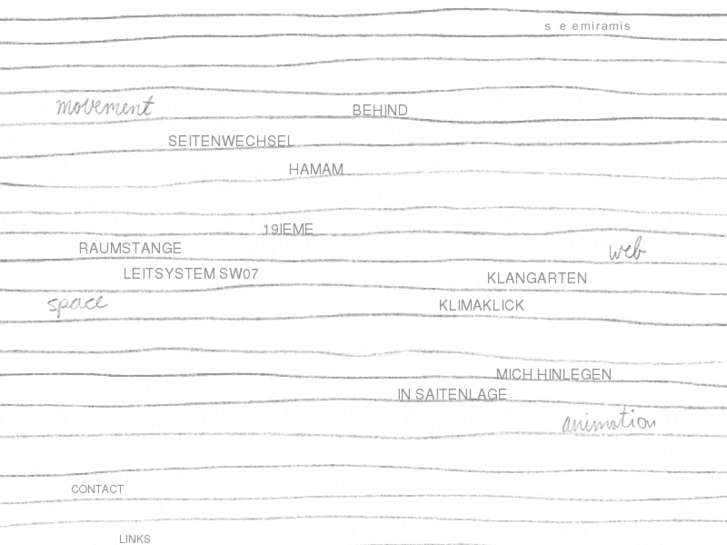 s e emiramis
movement
BEHIND
SEITENWECHSEL
HAMAM
19IEME
RAUMSTANGE
web
LEITSYSTEM SW07
KLANGARTEN
space
KLIMAKLICK
MICH HINLEGEN
IN SAITENLAGE
animation
CONTACT
LINKS